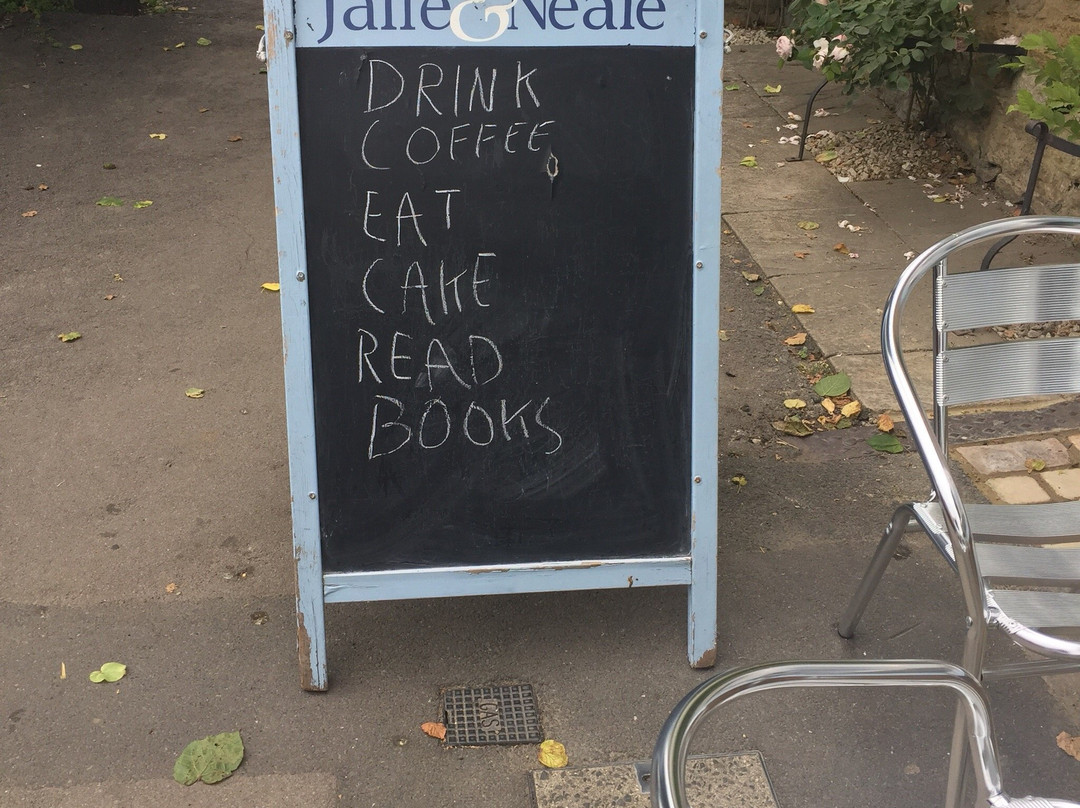 Jaffé & Neale
DRINK
COFFEE
EAT
CAKE
READ
BOOKS
GAS